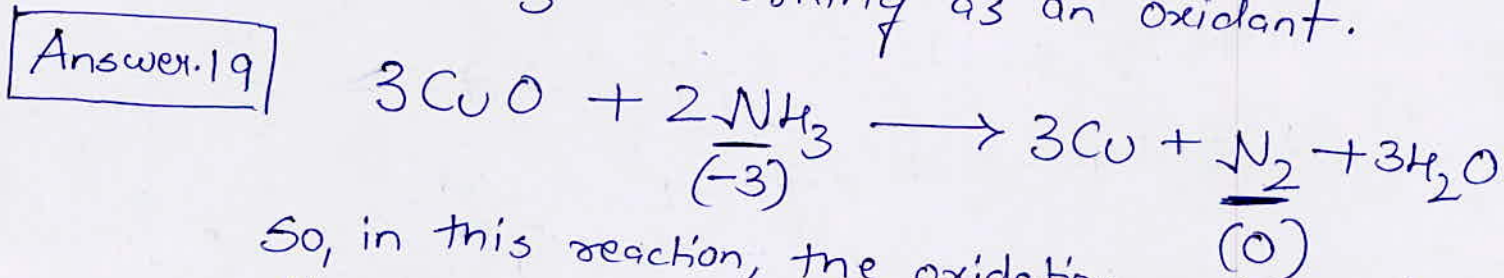 as an oxidant.
Answer.19 3CuO + 2NH₃ → 3Cu + N₂ + 3H₂O
(-3) (0)
So, in this reaction, the